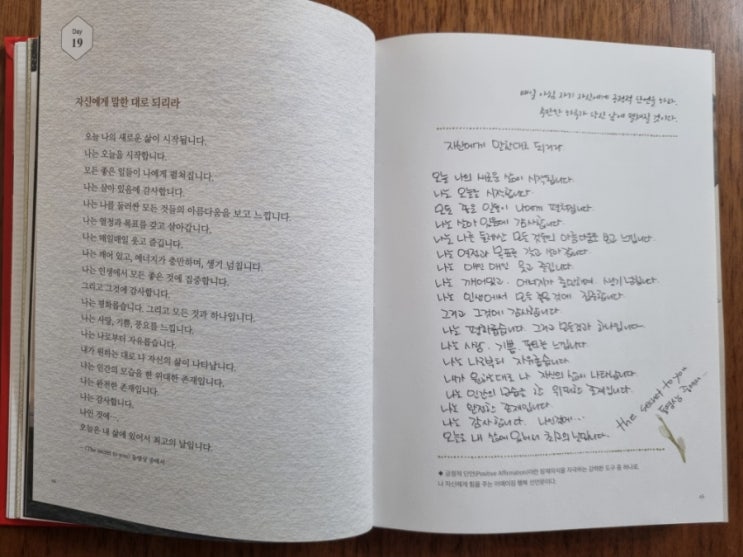 Day
19
자신에게 말한 대로 되리라
오늘 나의 새로운 삶이 시작됩니다.
나는 오늘을 시작합니다.
모든 좋은 일들이 나에게 펼쳐집니다.
나는 살아 있음에 감사합니다.
나는 나를 둘러싼 모든 것들의 아름다움을 보고 느낍니다.
나는 열정과 목표를 갖고 살아갑니다.
나는 매일매일 웃고 즐깁니다.
나는 깨어 있고, 에너지가 충만하며, 생기 넘칩니다.
나는 인생에서 모든 좋은 것에 집중합니다.
그리고 그것에 감사합니다.
나는 평화롭습니다. 그리고 모든 것과 하나입니다.
나는 사랑, 기쁨, 풍요를 느낍니다.
나는 나로부터 자유롭습니다.
내가 원하는 대로 나 자신의 삶이 나타납니다.
나는 인간의 모습을 한 위대한 존재입니다.
나는 완전한 존재입니다.
나는 감사합니다.
나인 것에…
오늘은 내 삶에 있어서 최고의 날입니다.
〈The secret to you〉 동영상 중에서
매일 아침 자기 자신에게 긍정적 단언을 하라.
충만한 하루가 당신 앞에 펼쳐질 것이다.
자신에게 말한대로 되리라
오늘 나의 새로운 삶이 시작됩니다.
나는 오늘을 시작합니다.
모든 좋은 일들이 나에게 펼쳐집니다.
나는 살아 있음에 감사합니다.
나는 나를 둘러싼 모든 것들의 아름다움을 보고 느낍니다.
나는 열정과 목표를 갖고 살아갑니다.
나는 매일 매일 웃고 즐깁니다.
나는 깨어있고, 에너지가 충만하며, 생기 넘칩니다.
나는 인생에서 모든 좋은 것에 집중합니다.
그리고 그것에 감사합니다.
나는 평화롭습니다. 그리고 모든것과 하나입니다.
나는 사랑, 기쁨, 풍요를 느낍니다.
나는 나로부터 자유롭습니다.
내가 원하는대로 나 자신의 삶이 나타납니다.
나는 인간의 모습을 한 위대한 존재입니다.
나는 완전한 존재입니다.
나는 감사합니다. 나인것에…
오늘은 내 삶에 있어서 최고의 날입니다.
the secret to you
동영상 중에서…
◆ 긍정적 단언(Positive Affirmation)이란 잠재의식을 자극하는 강력한 도구 중 하나로,
나 자신에게 힘을 주는 어메이징 행복 선언문이다.